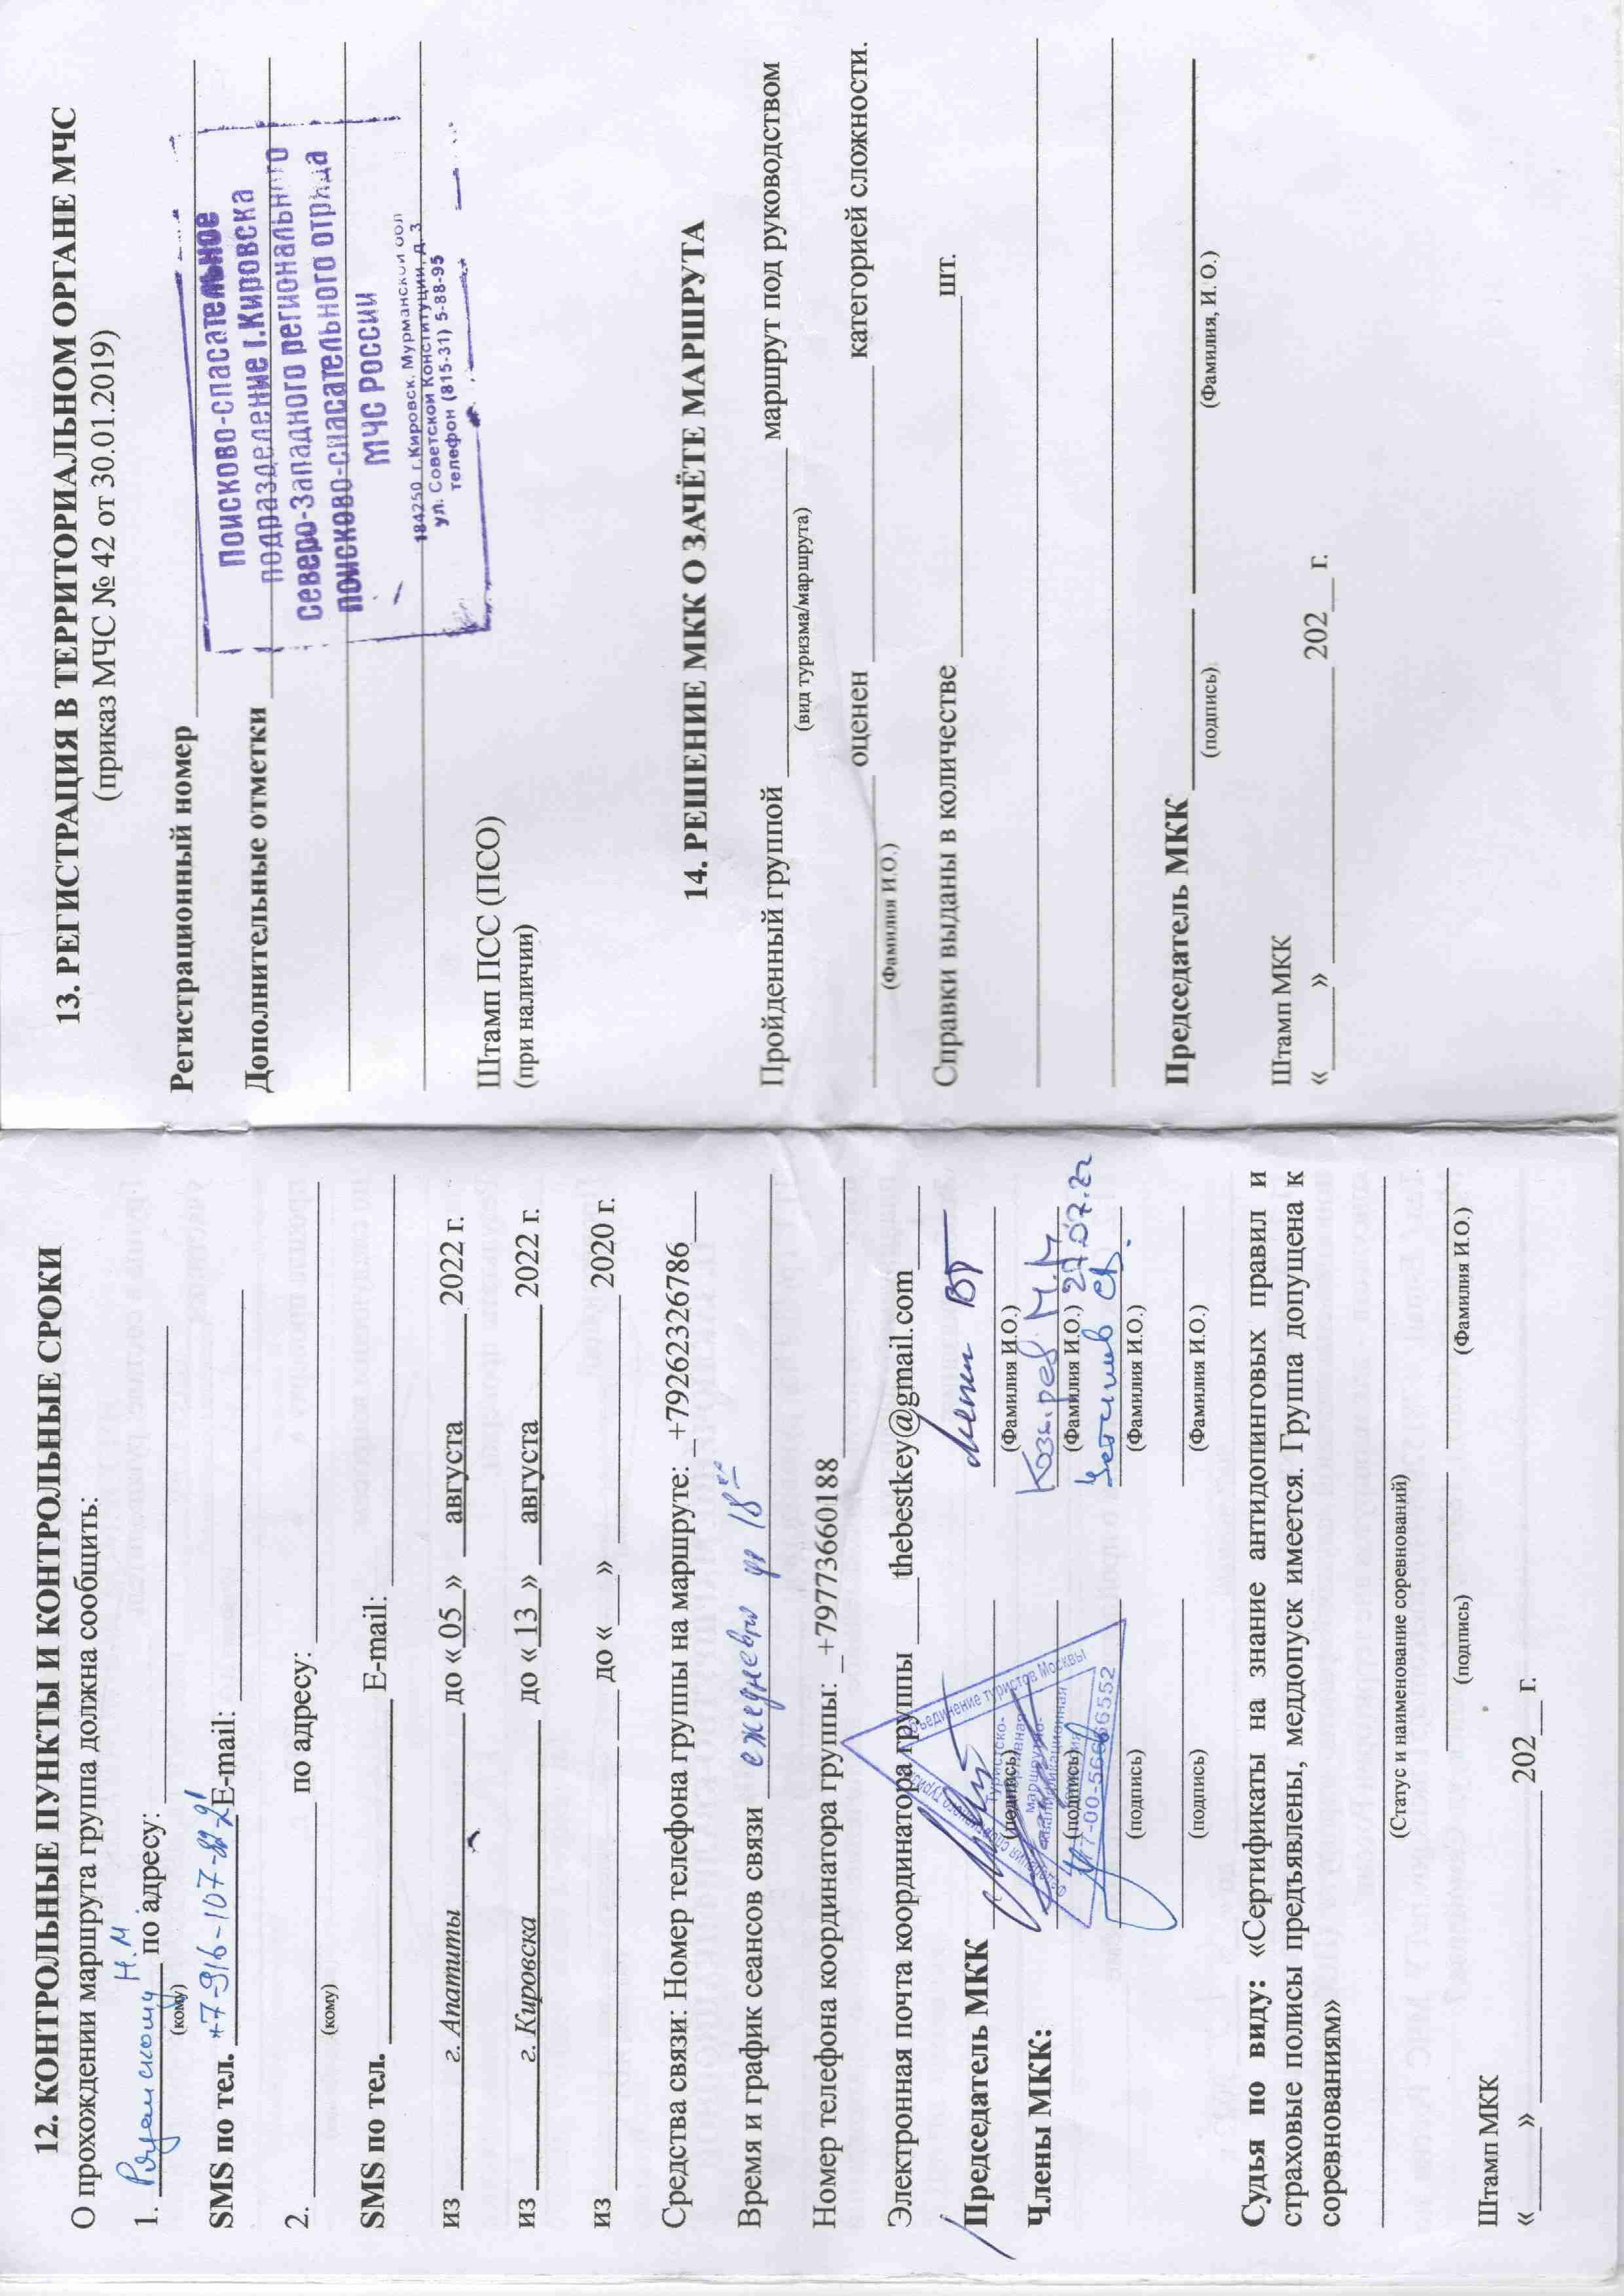 12. КОНТРОЛЬНЫЕ ПУНКТЫ И КОНТРОЛЬНЫЕ СРОКИ
О прохождении маршрута группа должна сообщить:
1. Рязанскому Н.М. по адресу:
(кому)
SMS по тел. +7-916-107-82-21 E-mail:
2. по адресу:
(кому)
SMS по тел. E-mail:
из г. Апатиты до « 05 » августа 2022 г.
из г. Кировска до « 13 » августа 2022 г.
из до « » 2020 г.
Средства связи: Номер телефона группы на маршруте: +79262326786
Время и график сеансов связи ежедневно до 18⁰⁰
Номер телефона координатора группы: +79773660188
Электронная почта координатора группы thebestkey@gmail.com
Председатель МКК
(подпись) (Фамилия И.О.)
Члены МКК: Козырев М.М
(подпись) (Фамилия И.О.) 27.07.22
(подпись) (Фамилия И.О.)
(подпись) (Фамилия И.О.)
объединение туристов Москвы
спортивного туризма
маршрутно-
квалификационная
77-00-56666552
Судья по виду: «Сертификаты на знание антидопинговых правил и
страховые полисы предъявлены, меддопуск имеется. Группа допущена к
соревнованиям»
(Статус и наименование соревнований)
(подпись) (Фамилия И.О.)
Штамп МКК
« » 202 г.
13. РЕГИСТРАЦИЯ В ТЕРРИТОРИАЛЬНОМ ОРГАНЕ МЧС
(приказ МЧС № 42 от 30.01.2019)
Регистрационный номер
Дополнительные отметки
Поисково-спасательное
подразделение г.Кировска
Северо-Западного регионального
поисково-спасательного отряда
МЧС России
184250 г.Кировск, Мурманской обл
ул. Советской Конституции, д. 3
телефон (815-31) 5-88-95
Штамп ПСС (ПСО)
(при наличии)
14. РЕШЕНИЕ МКК О ЗАЧЁТЕ МАРШРУТА
Пройденный группой маршрут под руководством
(вид туризма/маршрута)
оценен категорией сложности.
(Фамилия И.О.)
Справки выданы в количестве шт.
Председатель МКК
(подпись) (Фамилия, И.О.)
Штамп МКК
« » 202 г.